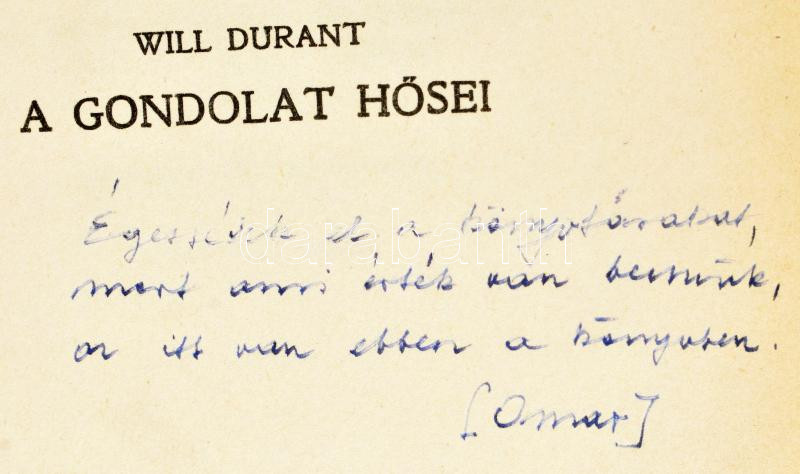 WILL DURANT
A GONDOLAT HŐSEI
Égessétek el a könyvtárakat,
mert ami érték van bennük,
az itt van ebben a könyvben.
[Omar]
darabanth